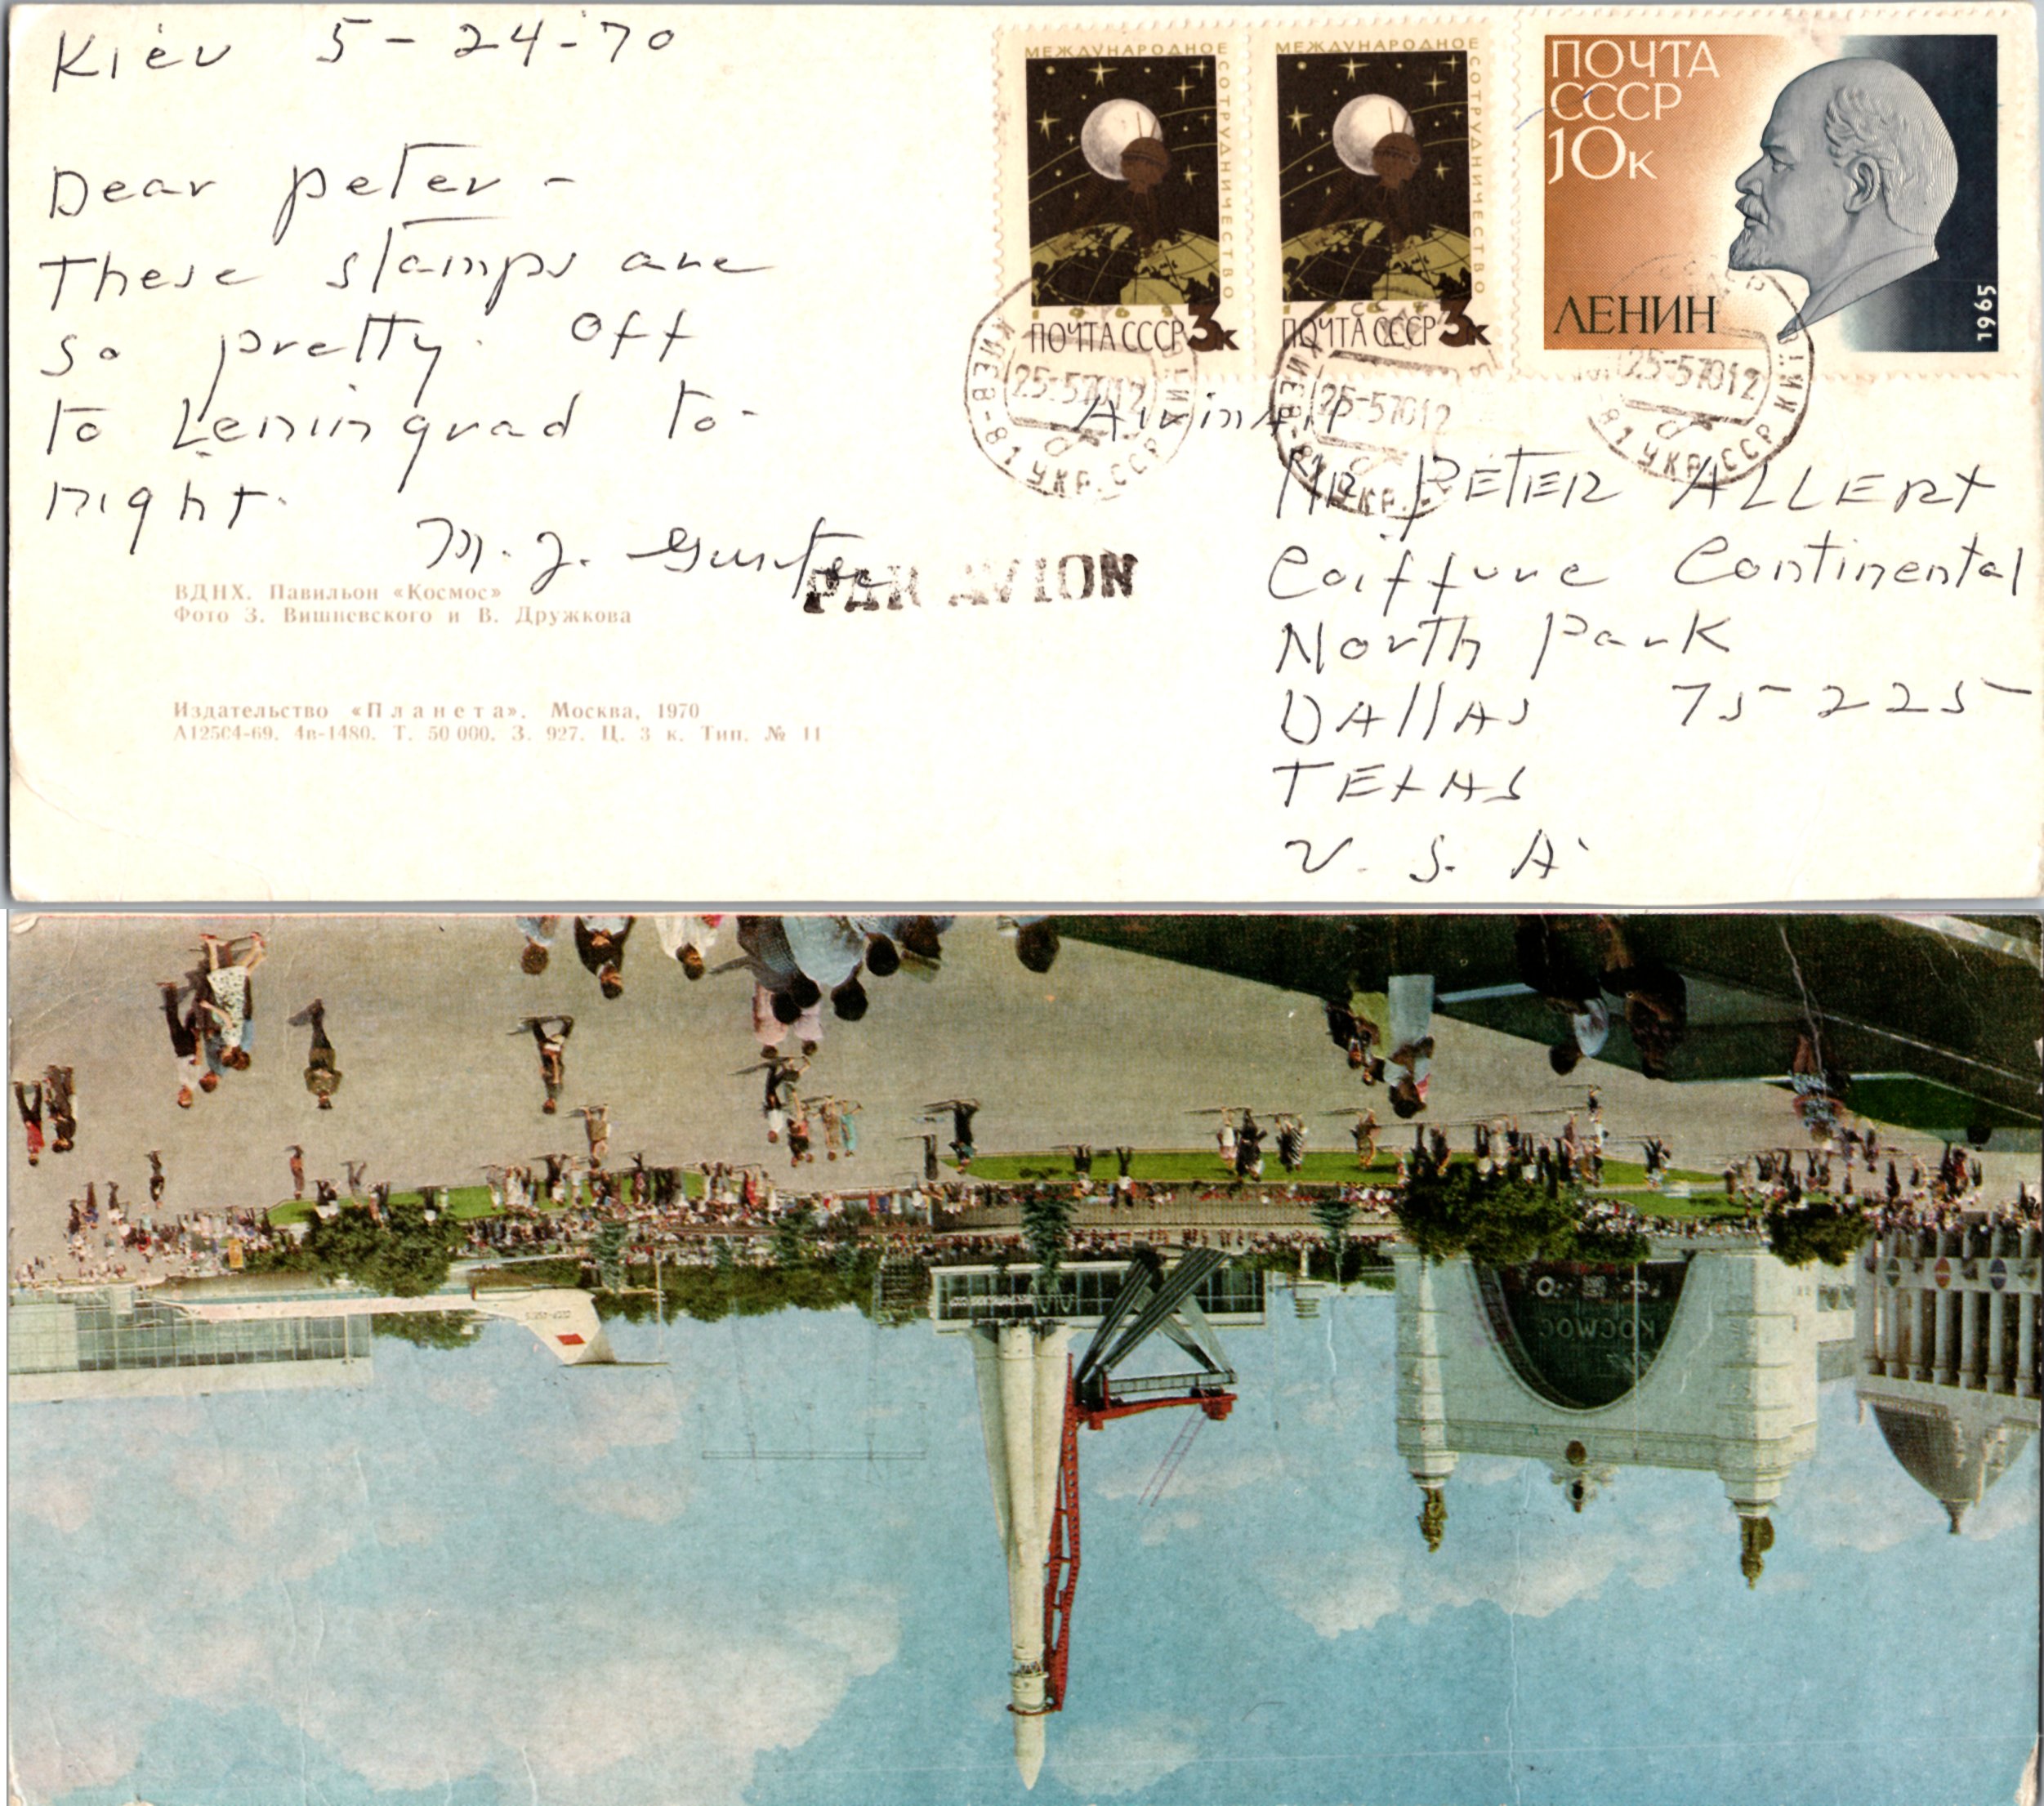 Kiev 5-24-70
Dear Peter -
These stamps are
so pretty. Off
to Leningrad to-
night.
ВДНХ. Павильон «Космос»
Фото З. Вишневского и В. Дружкова
Издательство «Планета». Москва, 1970
А12504-69. 4в-1480. Т. 50 000. З. 927. Ц. 3 к. Тип. № 11
МЕЖДУНАРОДНОЕ
СОТРУДНИЧЕСТВО
ПОЧТА СССР 3к
МЕЖДУНАРОДНОЕ
СОТРУДНИЧЕСТВО
ПОЧТА СССР 3к
ПОЧТА
СССР
10к
ЛЕНИН
1965
КИЕВ-81 УКР. ССР
25-57012
КИЕВ-81 УКР.
25-57012
25-57012
81 УКР. ССР
PAR AVION
Mr PETER ALLERT
Coiffure Continental
North Park
DALLAS 75225
TEXAS
U.S.A.
КОСМОС